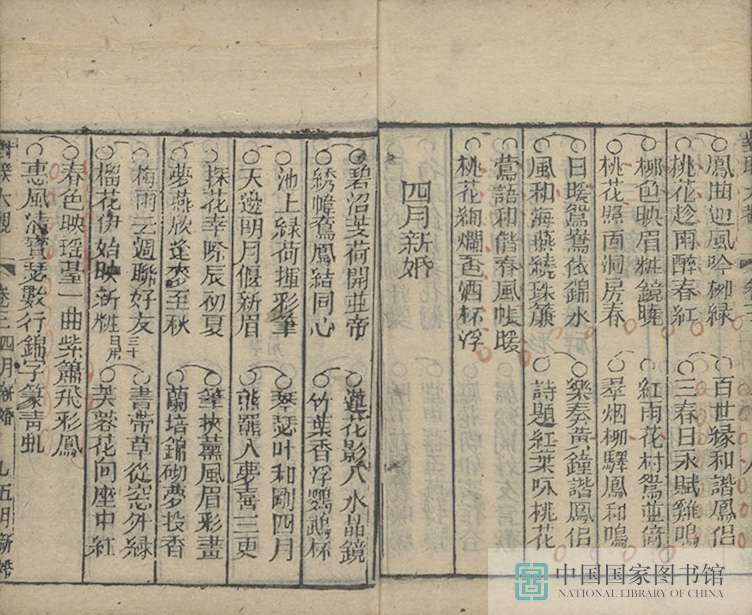 鳳曲迎風吟柳綠
桃花趁雨醉春紅
柳色映眉粧鏡曉
桃花照面洞房春
日暖鴛鴦依錦水
風和海燕繞珠簾
鶯語和偕春風帳暖
桃花絢爛色酒杯浮
百世緣和諧鳳侶
三春日永賦雞鳴
紅雨花村鴛並倚
翠烟柳驛鳳和鳴
樂奏黃鐘諧鳳侶
詩題紅葉咏桃花
四月新婚
碧沼芰荷開並蒂
綉幃鸞鳳結同心
池上綠荷揮彩筆
天邊明月偃新眉
探花幸際辰初夏
夢燕欣逢麥至秋
梅雨云週聯好友
榴花伊始映新粧
三十日用
春色映瑤臺一曲紫簫飛彩鳳
惠風清寶瑟數行錦字篆青虬
蓮花影入水晶鏡
竹葉香浮鸚鵡杯
琴瑟叶和剛四月
熊羆入夢喜三更
筆挾薰風眉彩畫
蘭培錦砌夢投香
書帶草從窓外綠
芙蓉花向座中紅
大觀
卷三 四月新婚
九 五月新婚
中国国家图书馆
NATIONAL LIBRARY OF CHINA